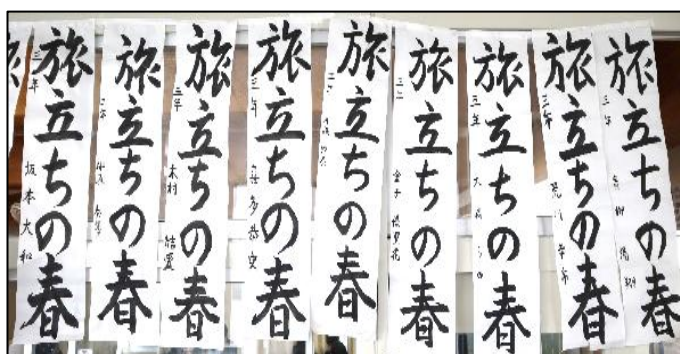 旅立ちの春
三年 坂本大和
旅立ちの春
旅立ちの春
三年 木村 結愛
旅立ちの春
三年 恭史
旅立ちの春
旅立ちの春
金子
旅立ちの春
三年
旅立ちの春
三年
旅立ちの春
三年